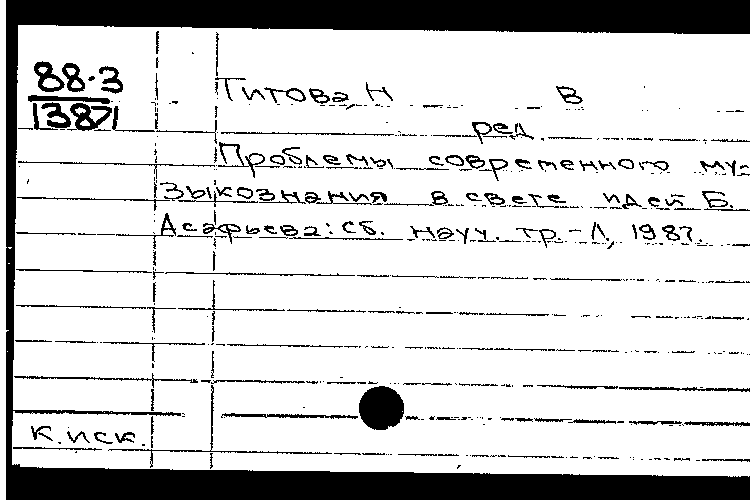 88-3
13871
Титова, Н В
ред.
Проблемы современного му-
зыкознания в свете идей Б.
Асафьева: Сб. науч. тр.-Л, 1987.
к. иск.